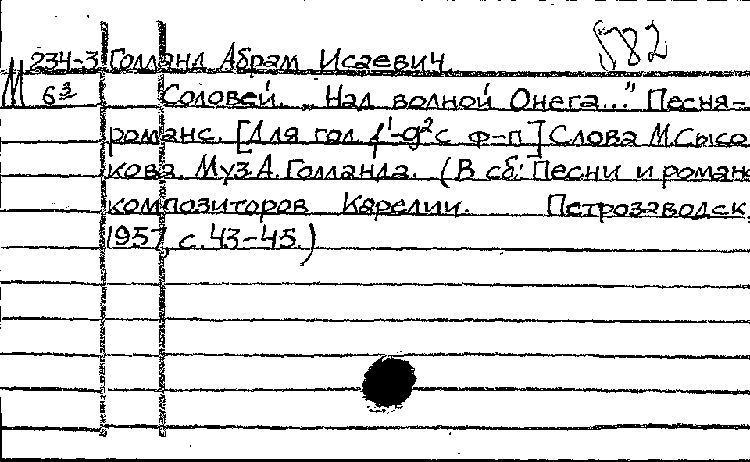 582
234-3 Голланд Абрам Исаевич.
М 6з Соловей. „Над волной Онега..." Песня-
романс. [Для гол. f¹-g² с ф-п] Слова М. Сысо
кова. Муз. А. Голланда. (В сб.: Песни и роман
композиторов Карелии. Петрозаводск,
1957, с. 43-45.)